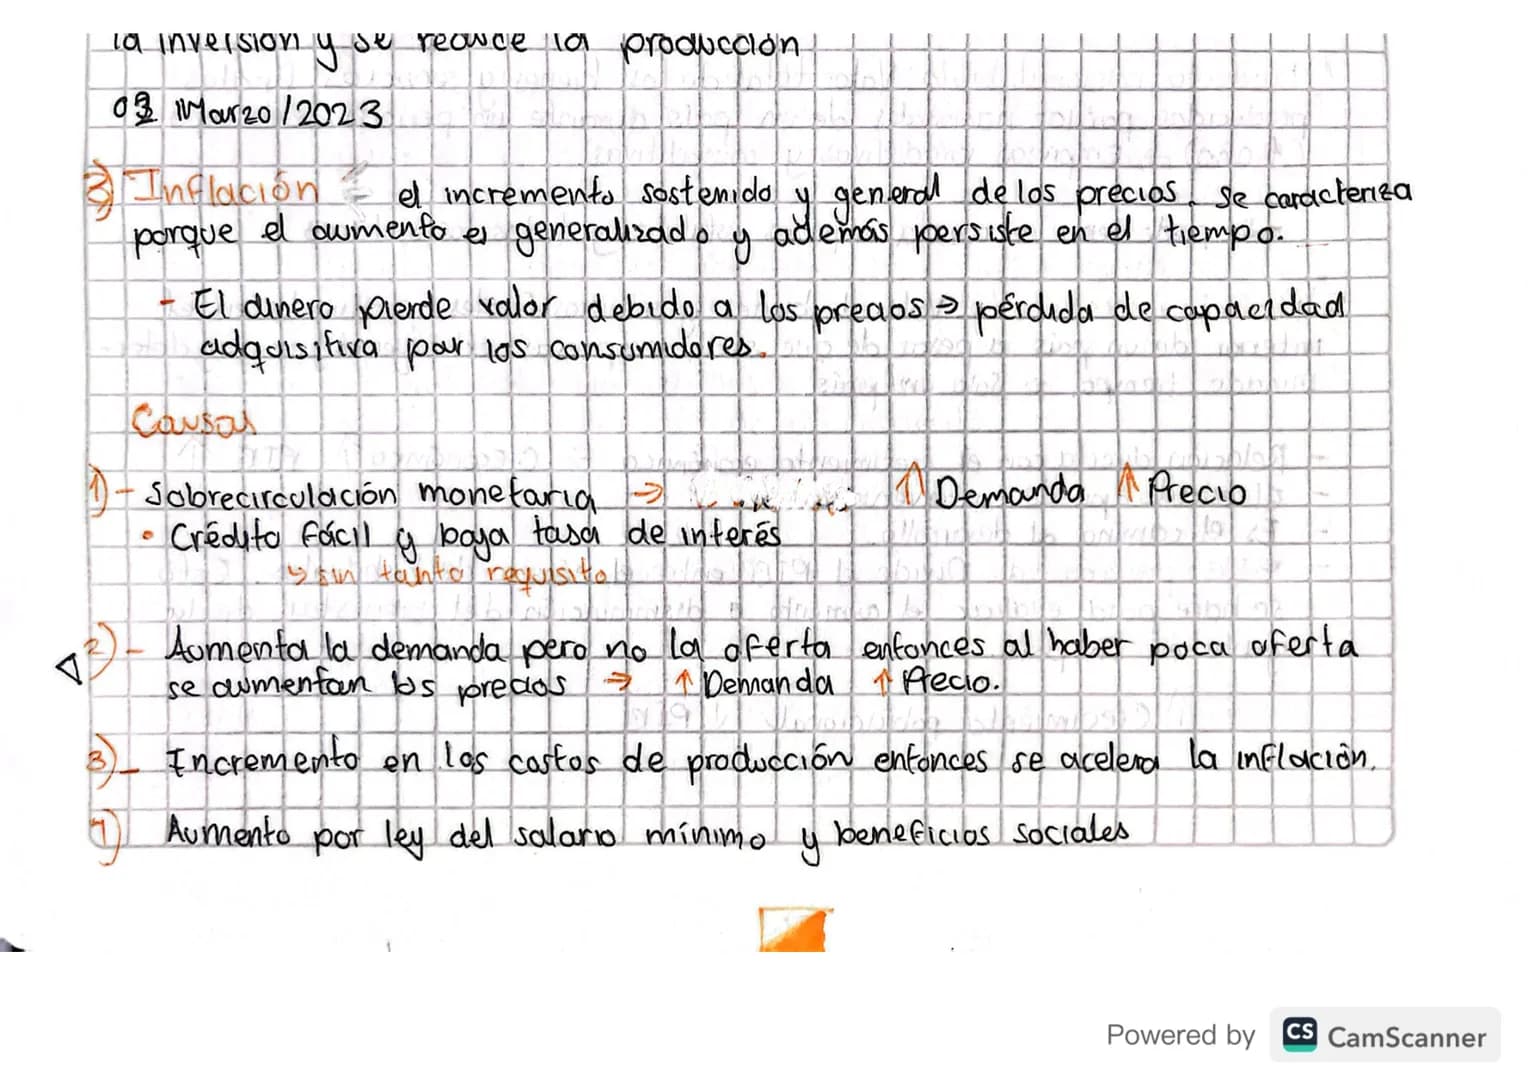 la inversión y se reduce la producción
03 Marzo/2023
3) Inflación = el incremento sostenido y general de los precios. Se caracteriza
porque el aumento es generalizado y además persiste en el tiempo.
- El dinero pierde valor debido a los precios → pérdida de capacidad
adquisitiva por los consumidores.
Causas
1)- Sobrecirculación monetaria → ↑ Demanda ↑ Precio
• Crédito fácil y baja tasa de interés
↳ sin tanto requisito
2)- Aumenta la demanda pero no la oferta entonces al haber poca oferta
se aumentan los precios → ↑ Demanda ↑ Precio.
3)- Incremento en los costos de producción entonces se acelera la inflación.
4) Aumento por ley del salario mínimo y beneficios sociales
Powered by CS CamScanner